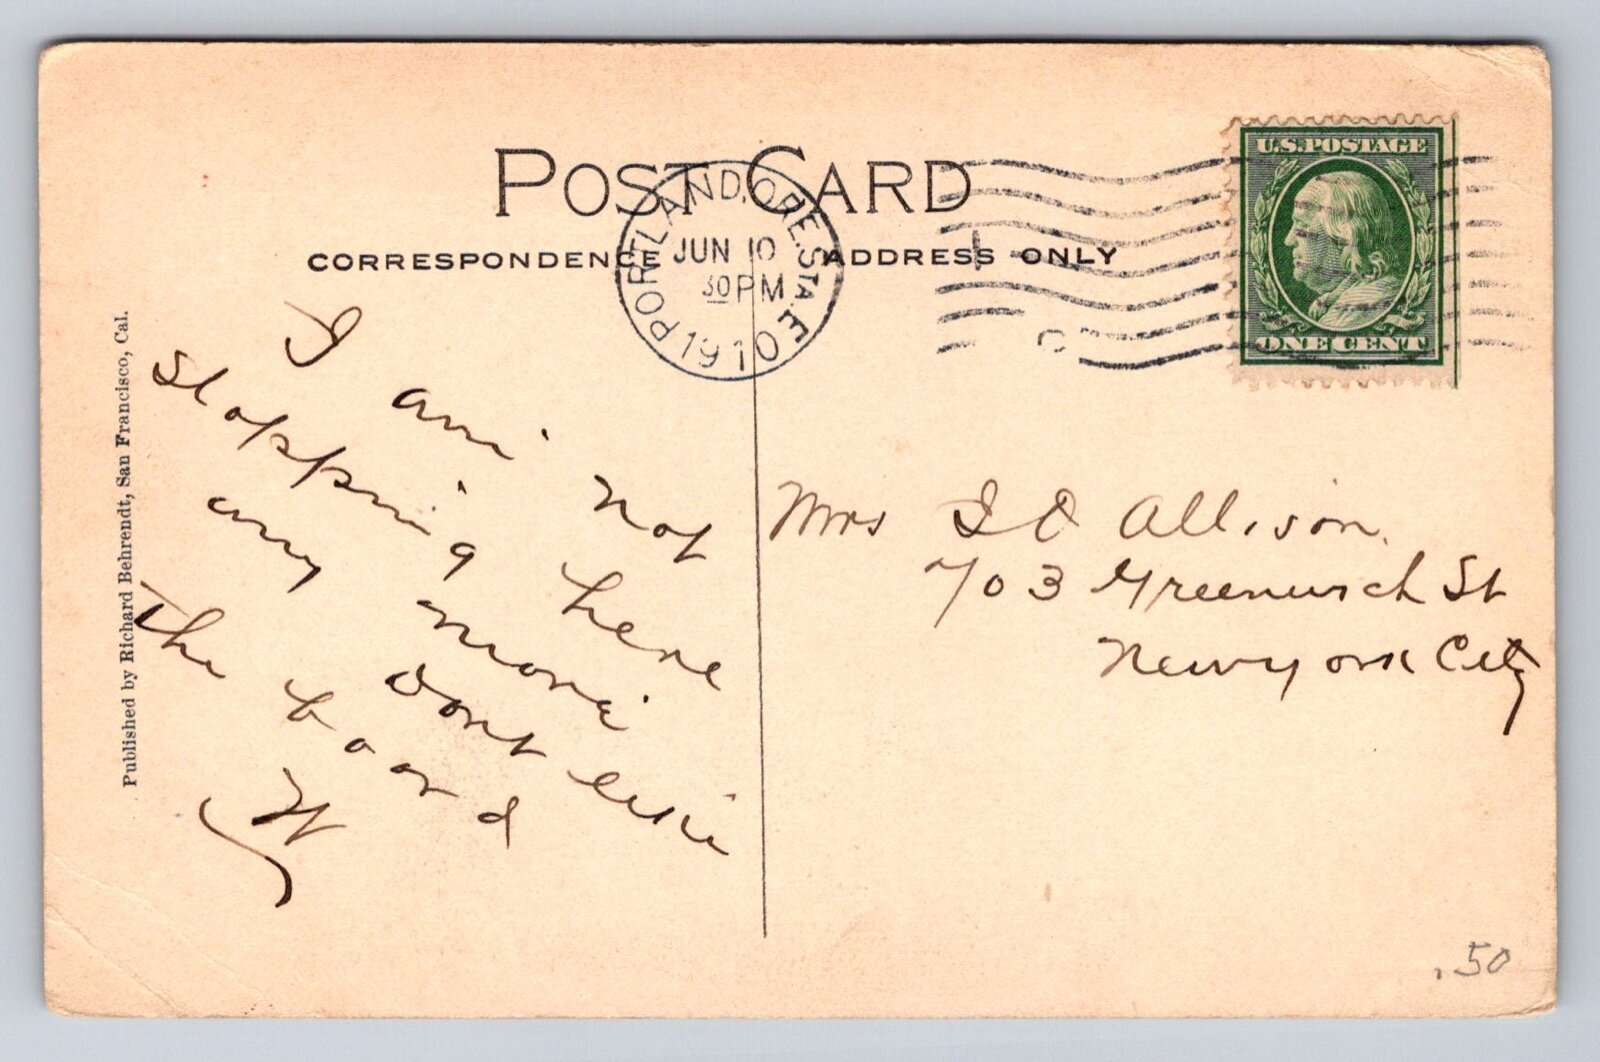 POST CARD
CORRESPONDENCE
ADDRESS ONLY
PORTLAND, ORE. STA. E
JUN 10
30 PM
1910
U.S. POSTAGE
ONE CENT
I am not
stopping here
any more
dont like
the board
H
Mrs I D Allison
703 Greenwich St
New york City
Published by Richard Behrendt, San Francisco, Cal.
.50